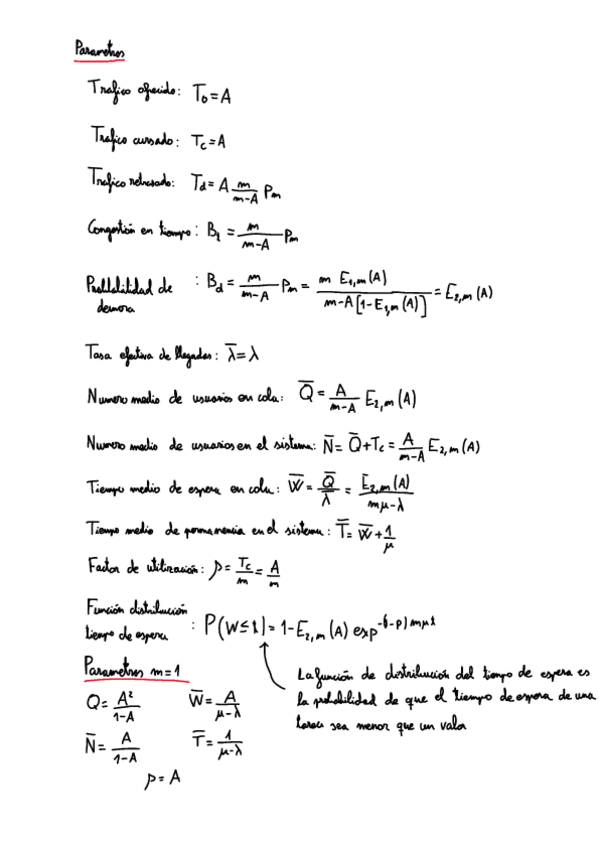 Parametros
Trafico ofrecido: T₀ = A
Trafico cursado: T_c = A
Trafico retrasado: T_d = A m/(m-A) P_m
Congestión en tiempo: B_t = m/(m-A) P_m
Probabilidad de demora : B_d = m/(m-A) P_m = m E_{1,m}(A) / (m-A[1-E_{1,m}(A)]) = E_{2,m}(A)
Tasa efectiva de llegadas: λ̄ = λ
Numero medio de usuarios en cola: Q̄ = A/(m-A) E_{2,m}(A)
Numero medio de usuarios en el sistema: N̄ = Q̄ + T_c = A/(m-A) E_{2,m}(A)
Tiempo medio de espera en cola: W̄ = Q̄/λ = E_{2,m}(A)/(mμ-λ)
Tiempo medio de permanencia en el sistema: T̄ = W̄ + 1/μ
Factor de utilización: ρ = T_c/m = A/m
Función distribución tiempo de espera : P(W≤t) = 1-E_{2,m}(A) exp^{-(1-ρ)mμt}
Parametros m=1
Q = A²/(1-A) W̄ = A/(μ-λ)
N̄ = A/(1-A) T̄ = 1/(μ-λ)
ρ = A
La función de distribución del tiempo de espera es
la probabilidad de que el tiempo de espera de una
tarea sea menor que un valor